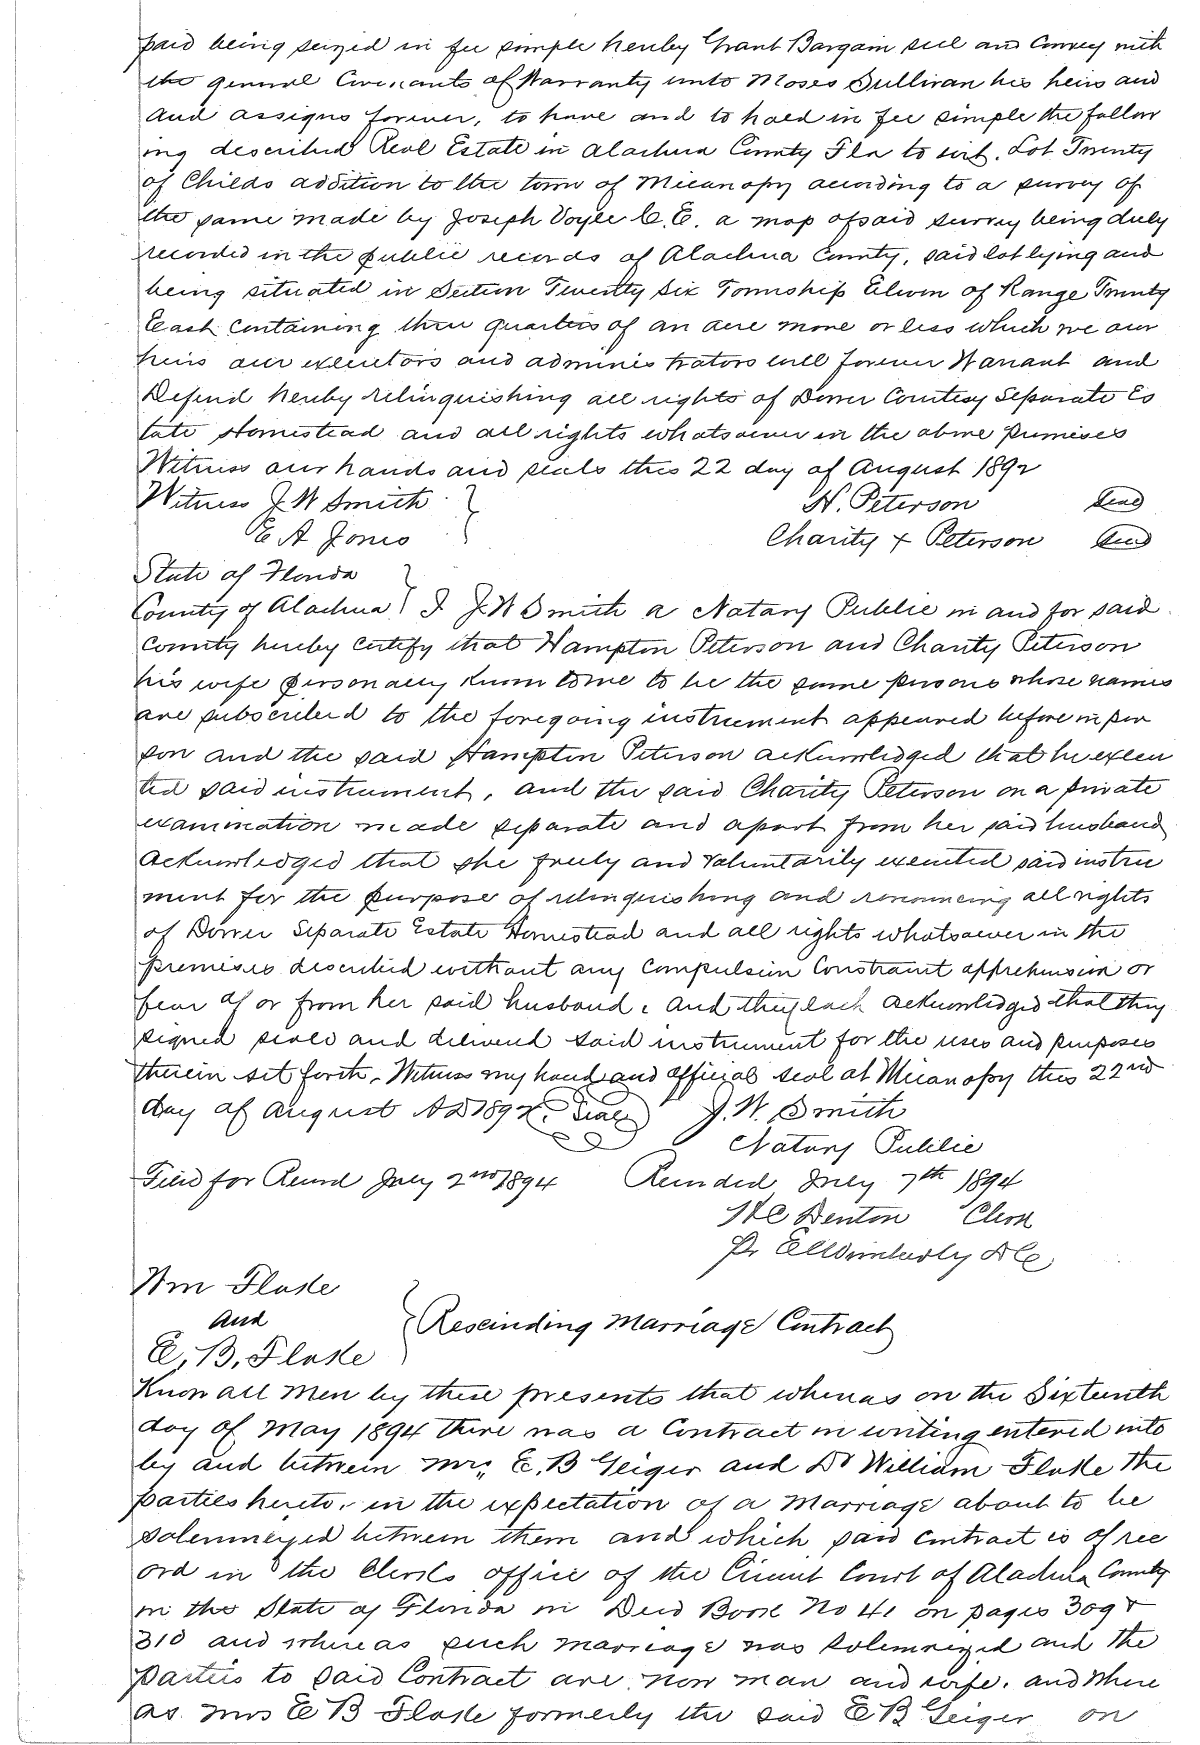 paid being seized in fee simple hereby Grant Bargain sell and Convey with
the general Covenants of Warranty unto Moses Sullivan his heirs and
and assigns forever, to have and to hold in fee simple the follow
ing described Real Estate in Alachua County Fla to wit. Lot Twenty
of Childs addition to the town of Micanopy acording to a survey of
the same made by Joseph Voyle C.E. a map of said survey being duly
recorded in the public records of Alachua County, said lot lying and
being situated in Section Twenty Six Township Eleven of Range Twenty
East containing three quarters of an acre more or less which we our
heirs our executors and administrators will forever Warrant and
Defend hereby relinquishing all rights of Dower Courtesy Separate Es
tate Homestead and all rights whatsoever in the above premises
Witness our hands and seals this 22 day of August 1892
Witness J W Smith } H. Peterson Seal
E A Jones Charity x Peterson Seal
State of Florida }
County of Alachua } I J.W Smith a Notary Public in and for said
County hereby certify that Hampton Peterson and Charity Peterson
his wife personally known to me to be the same persons whose names
are subscribed to the foregoing instrument appeared before in per
son and the said Hampton Peterson acknowledged that he execu
ted said instrument, and the said Charity Peterson on a private
examination made separate and apart from her said husband
acknowledged that she freely and voluntarily executed said instru
ment for the purpose of relinquishing and renouncing all rights
of Dower Separate Estate Homestead and all rights whatsoever in the
premises described without any compulsion Constraint apprehension or
fear of or from her said husband. And they each acknowledged that they
signed seald and deliverd said instrument for the uses and purposes
therein set forth. Witness my hand and official seal at Micanopy this 22nd
day of August AD 1892. Seal J. W. Smith
Notary Public
Filed for Record July 2nd 1894 Recorded July 7th 1894
H C Denton Clerk
Pr E C Wimberly D C
Wm Fluke
and } Rescinding Marriage Contract
E. B. Fluke
Know all Men by these presents that whereas on the Sixteenth
day of May 1894 there was a Contract in writing entered into
by and between Mrs. E. B Geiger and Dr William Fluke the
parties hereto, in the expectation of a Marriage about to be
solemnized between them and which said contract is of rec
ord in the Clerks office of the Circuit Court of Alachua County
in the State of Florida in Deed Book No 41 on pages 309 &
310 and whereas such marriage was solemnized and the
parties to said Contract are now man and wife. and where
as Mrs E B Fluke formerly the said E B Geiger on